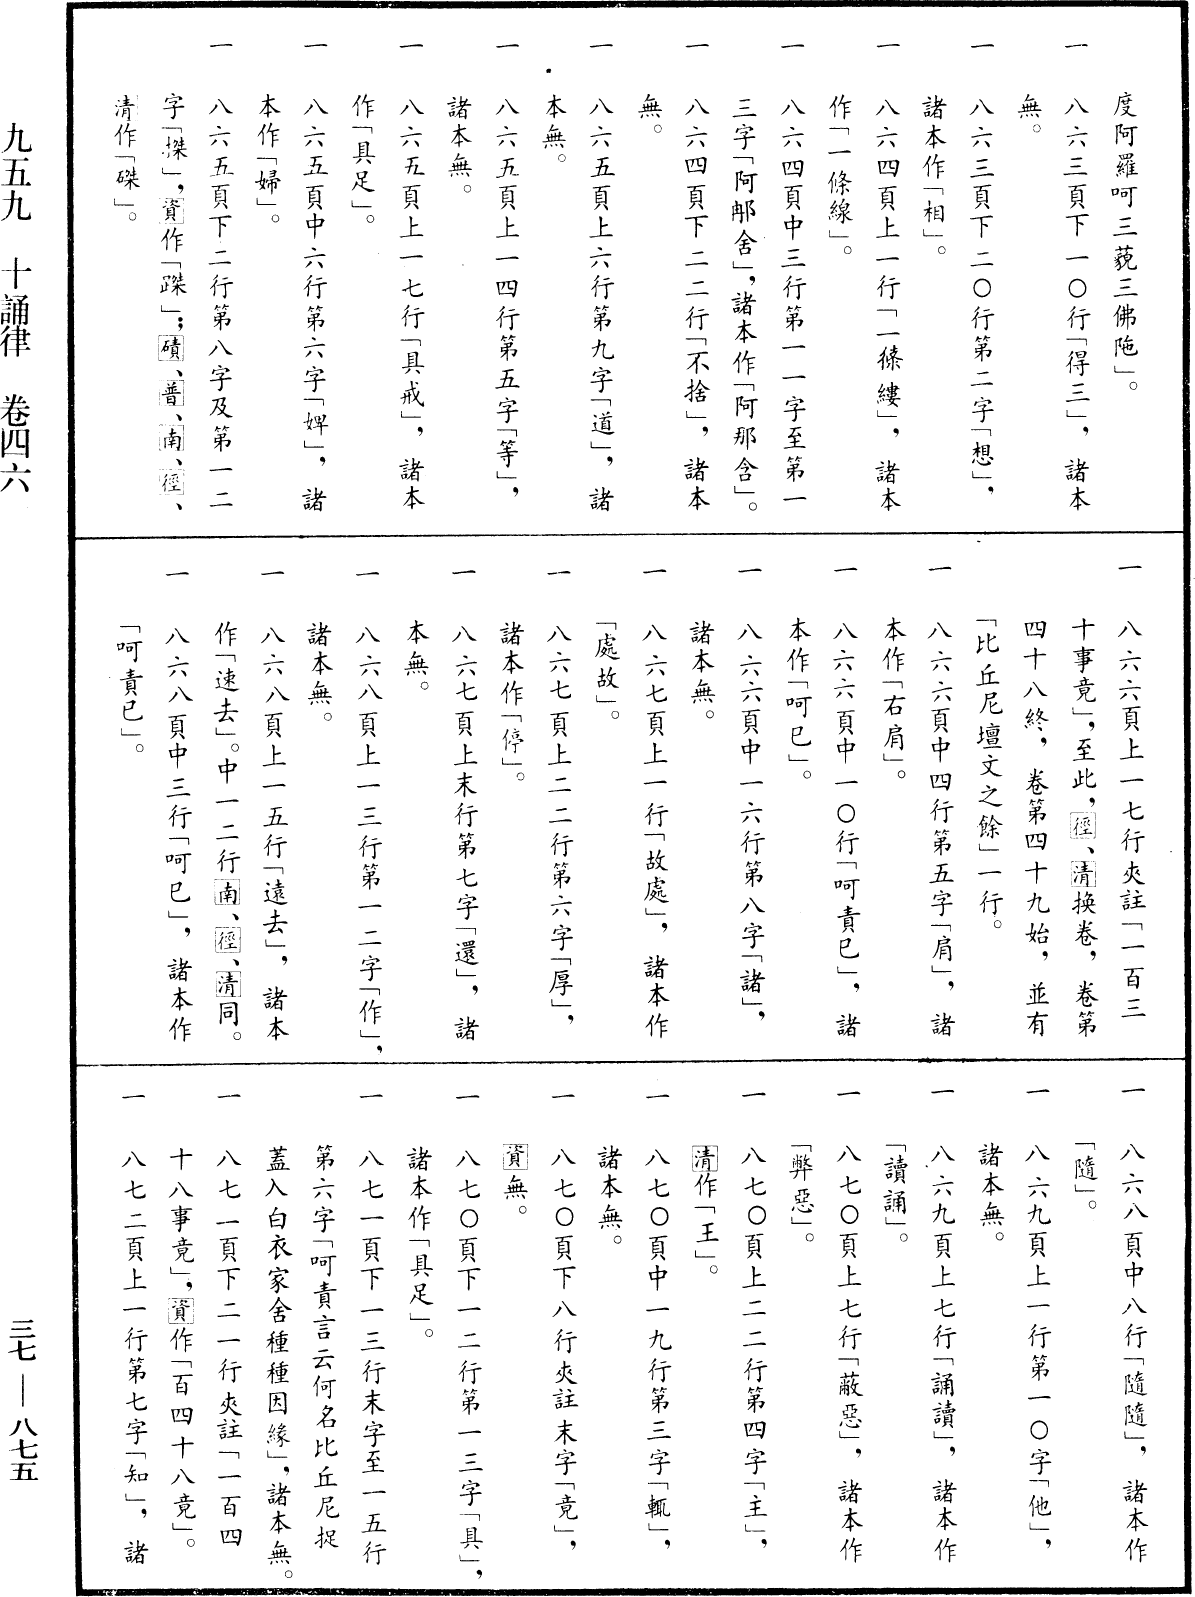 度阿羅呵三藐三佛陁」。
一　八六三頁下一〇行「得三」，諸本
無。
一　八六三頁下二〇行第二字「想」，
諸本作「相」。
一　八六四頁上一行「一絛縷」，諸本
作「一條線」。
一　八六四頁中三行第一一字至第一
三字「阿𨚗舍」，諸本作「阿那含」。
一　八六四頁下二二行「不捨」，諸本
無。
一　八六五頁上六行第九字「道」，諸
本無。
一　八六五頁上一四行第五字「等」，
諸本無。
一　八六五頁上一七行「具戒」，諸本
作「具足」。
一　八六五頁中六行第六字「婢」，諸
本作「婦」。
一　八六五頁下二行第八字及第一二
字「搩」，資作「蹀」；磧、普、南、徑、
清作「磔」。
一　八六六頁上一七行夾註「一百三
十事竟」，至此，徑、清換卷，卷第
四十八終，卷第四十九始，並有
「比丘尼壇文之餘」一行。
一　八六六頁中四行第五字「肩」，諸
本作「右肩」。
一　八六六頁中一〇行「呵責已」，諸
本作「呵已」。
一　八六六頁中一六行第八字「諸」，
諸本無。
一　八六七頁上一行「故處」，諸本作
「處故」。
一　八六七頁上二二行第六字「厚」，
諸本作「停」。
一　八六七頁上末行第七字「還」，諸
本無。
一　八六八頁上一三行第一二字「作」，
諸本無。
一　八六八頁上一五行「遠去」，諸本
作「速去」。中一二行南、徑、清同。
一　八六八頁中三行「呵已」，諸本作
「呵責已」。
一　八六八頁中八行「隨隨」，諸本作
「隨」。
一　八六九頁上一行第一〇字「他」，
諸本無。
一　八六九頁上七行「誦讀」，諸本作
「讀誦」。
一　八七〇頁上七行「蔽惡」，諸本作
「弊惡」。
一　八七〇頁上二二行第四字「主」，
清作「王」。
一　八七〇頁中一九行第三字「輒」，
諸本無。
一　八七〇頁下八行夾註末字「竟」，
資無。
一　八七〇頁下一二行第一三字「具」，
諸本作「具足」。
一　八七一頁下一三行末字至一五行
第六字「呵責言云何名比丘尼捉
蓋入白衣家舍種種因緣」，諸本無。
一　八七一頁下二一行夾註「一百四
十八事竟」，資作「百四十八竟」。
一　八七二頁上一行第七字「知」，諸
九五九　十誦律　卷四六
三七—八七五